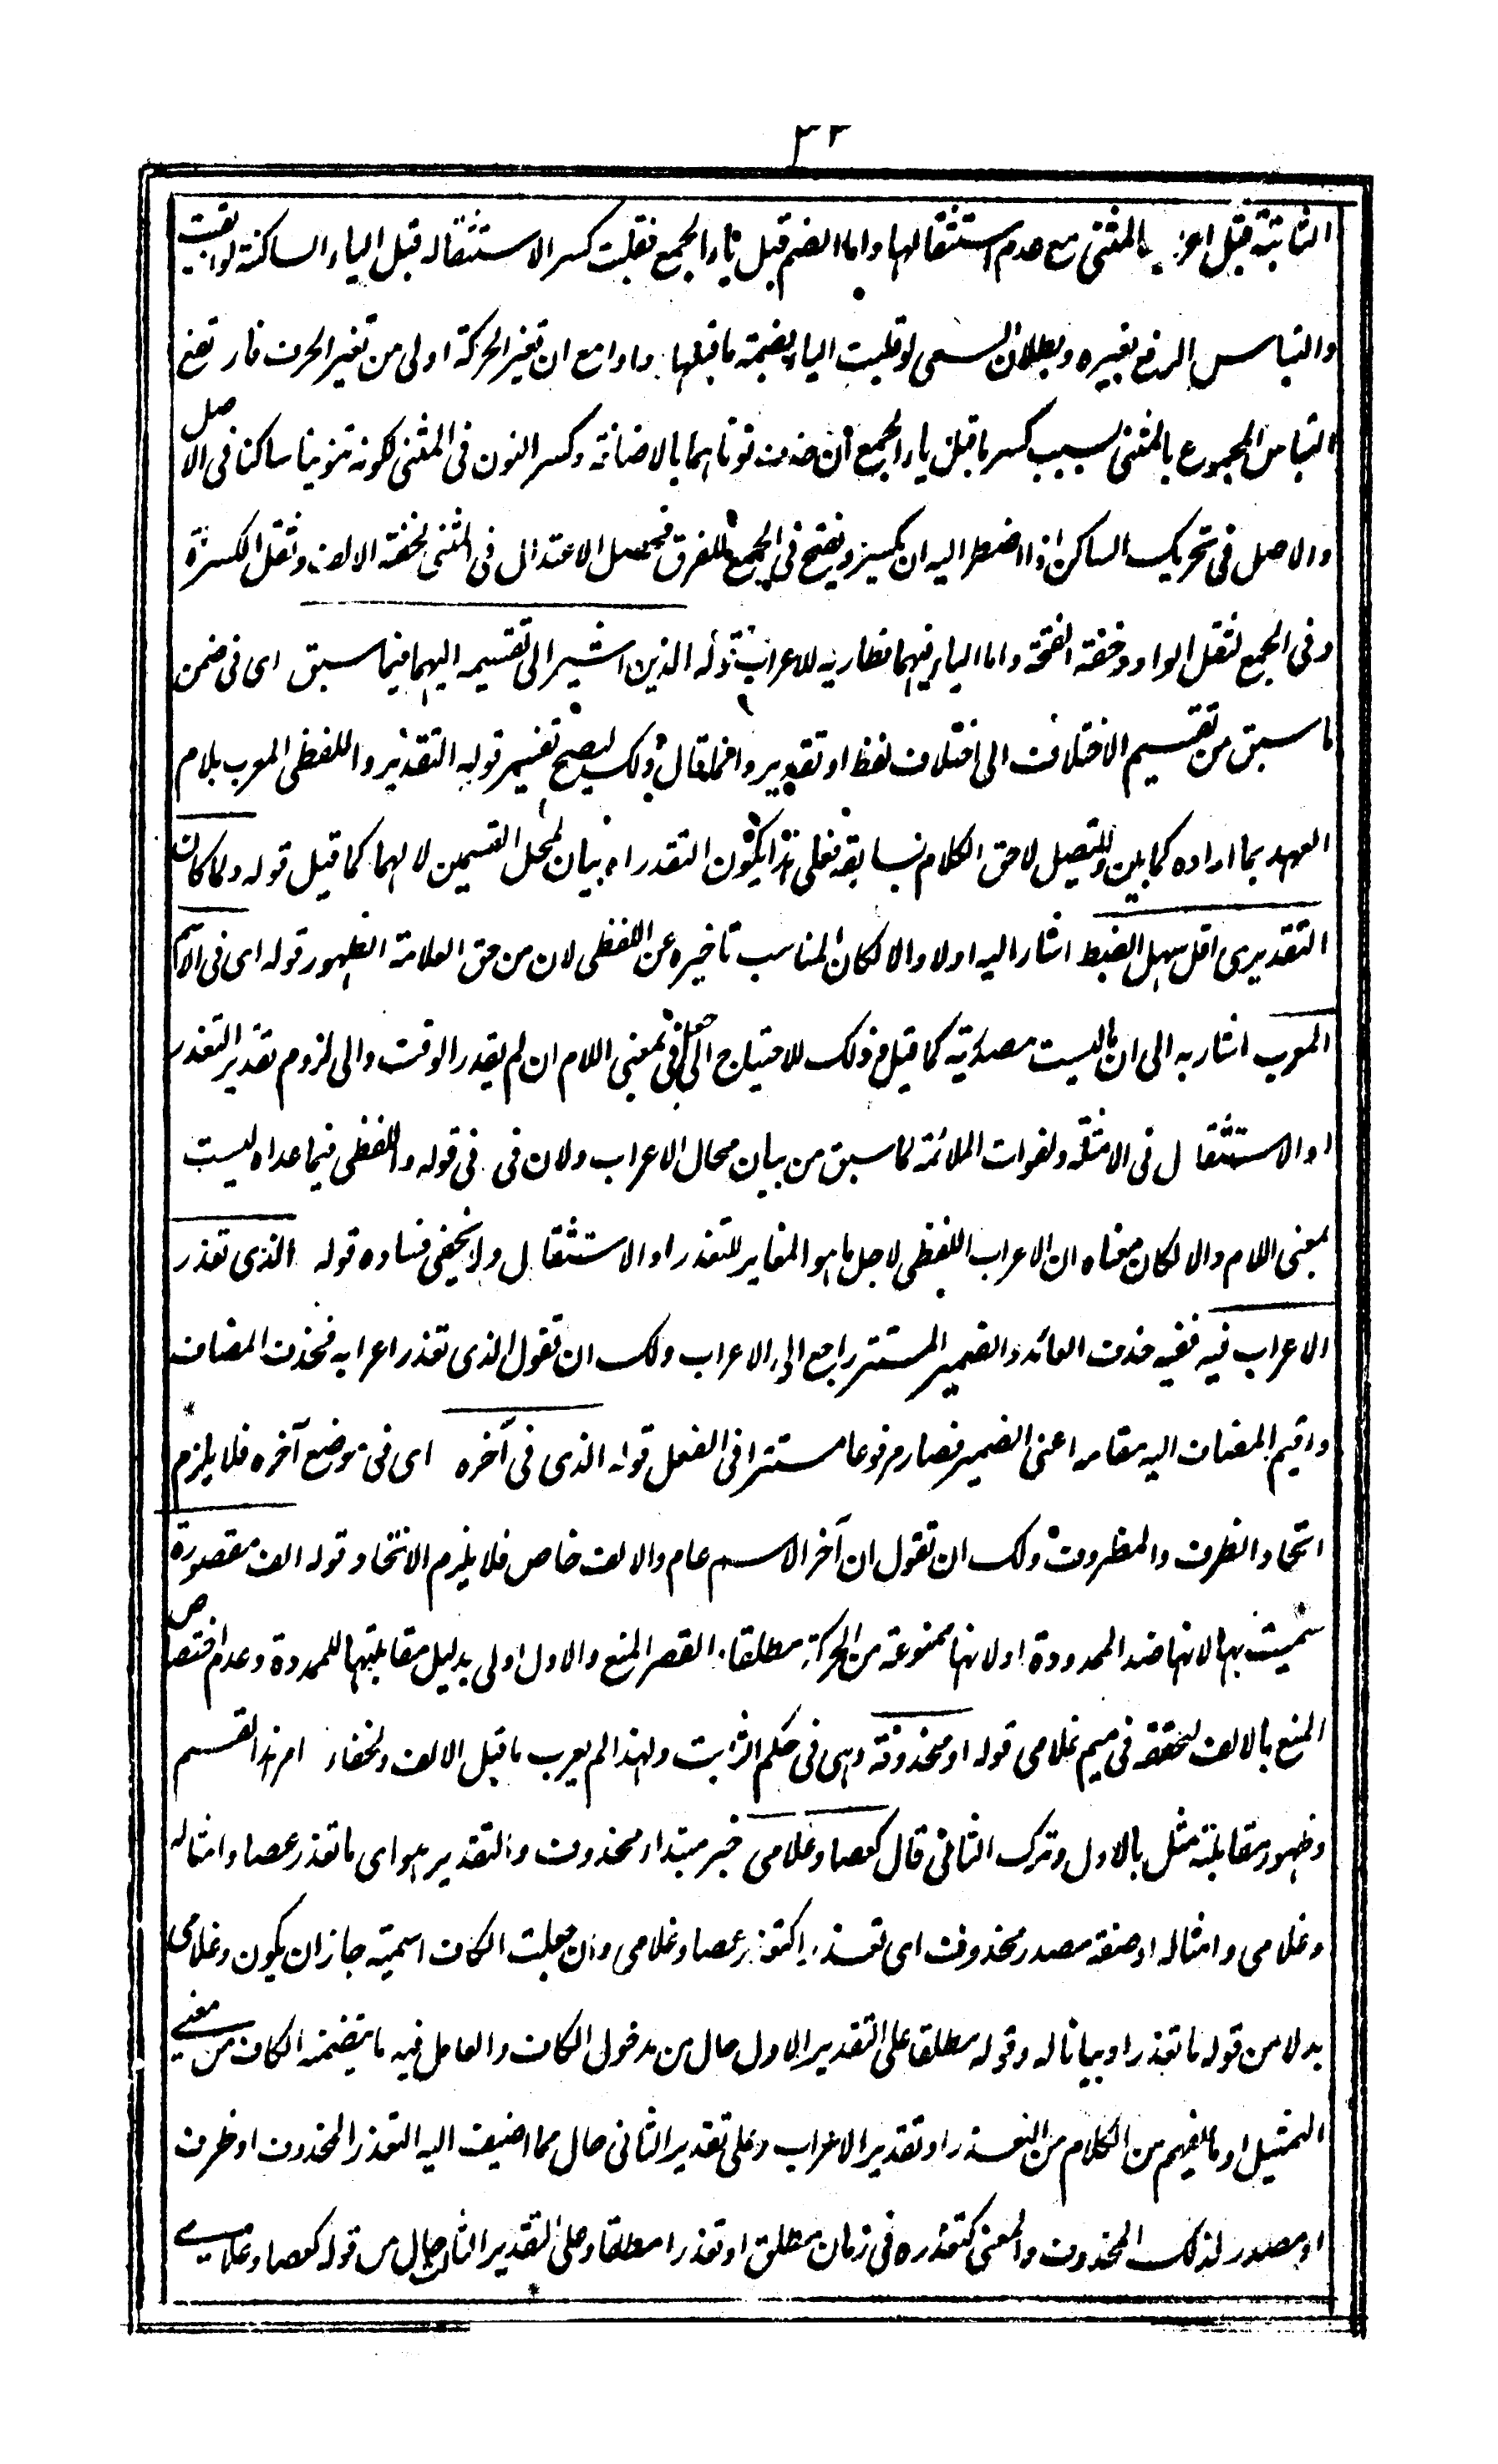 ٣٢
الثابتة قبل اعرا بالمثنى مع عدم استثقالها واما الضم قبل ياء الجمع فقلبت كسر الاستثقاله قبل الياء الساكنة لو ابقيت
والتباس الرفع بغيره وبطلان السعى لو قلبت الياء بضمة ما قبلها واوا مع ان تغير الحركة اولى من تغير الحرف فارتفع
التباس المجموع بالمثنى بسبب كسر ما قبل ياء الجمع ان حذفت نوناهما بالاضافة وكسر النون فى المثنى لكونه تنوينا ساكنا فى الاصل
والاصل فى تحريك الساكن اذا اضطر اليه ان يكسر ويفتح فى الجمع للفرق فحصل الاعتدال فى المثنى بخفة الالف وثقل الكسرة
وفى الجمع لثقل الواو وخفة الفتحة واما الياء فيهما فطارية للاعراب قوله الذين اشير الى تقسيمه اليهما فيما سبق اى فى ضمن
ما سبق من تقسيم الاختلاف الى اختلاف لفظ او تقدير وانما قال ذلك ليصح تفسير قوله التقدير واللفظى المعرب بلام
العهد بما اراده كما بين وليتصل لاحق الكلام بسابقه فعلى هذا يكون التقدراه بيان لمحل القسمين لا لهما كما قيل قوله ولما كان
التقديرى اقل سهل الضبط اشار اليه اولا والا لكان المناسب تاخيره عن اللفظى لان من حق العلامة الظهور قوله اى فى الاسم
المعرب اشار به الى ان ما ليست مصدرية كما قيل وذلك للاحتياج الى جعل فى بمعنى اللام ان لم يقدر الوقت والى لزوم تقدير التعذر
او الاستثقال فى الامثلة ولفوات الملائمة لما سبق من بيان محال الاعراب ولان فى فى قوله واللفظى فيما عداه ليست
بمعنى اللام والا لكان معناه ان الاعراب اللفظى لاجل ما هو المغاير للتعذر او الاستثقال ولا يخفى فساده قوله الذى تعذر
الاعراب فيه ففيه حذف العائد والضمير المستتر راجع الى الاعراب ولك ان تقول الذى تعذر اعرابه فحذف المضاف
واقيم المضاف اليه مقامه اعنى الضمير فصار مرفوعا مستترا فى الفعل قوله الذى فى آخره اى فى موضع آخره فلا يلزم
اتحاد الظرف والمظروف ولك ان تقول ان آخر الاسم عام والالف خاص فلا يلزم الاتحاد قوله الف مقصورة
سميت بها لانها ضد الممدودة او لانها ممنوعة من الحركة مطلقا والقصر المنع والاول اولى بدليل مقابلتها للممدودة وعدم اختصاص
المنع بالالف لتحققه فى ميم غلامى قوله او محذوفة وهى فى حكم الثابت ولهذا لم يعرب ما قبل الالف ولخفاء امر هذا القسم
وظهور مقابلته مثل بالاول وترك الثانى قال كعصا وغلامى خبر مبتدا محذوف والتقدير هو اى ما تعذر عصا وامثاله
وغلامى وامثاله او صفة مصدر محذوف اى تعذرا كتعذر عصا وغلامى وان جعلت الكاف اسمية جاز ان يكون وغلامى
بدلا من قوله ما تعذر او بيانا له وقوله مطلقا على التقدير الاول حال من مدخول الكاف والعامل فيه ما يتضمنه الكاف من معنى
التمثيل او ما يفهم من الكلام من التعذر او تقدير الاعراب وعلى تقدير الثانى حال مما اضيف اليه التعذر المحذوف او ظرف
او مصدر لذلك المحذوف والمعنى كتعذره فى زمان مطلق او تعذرا مطلقا وعلى التقدير الثالث حال من قوله كعصا وغلامى